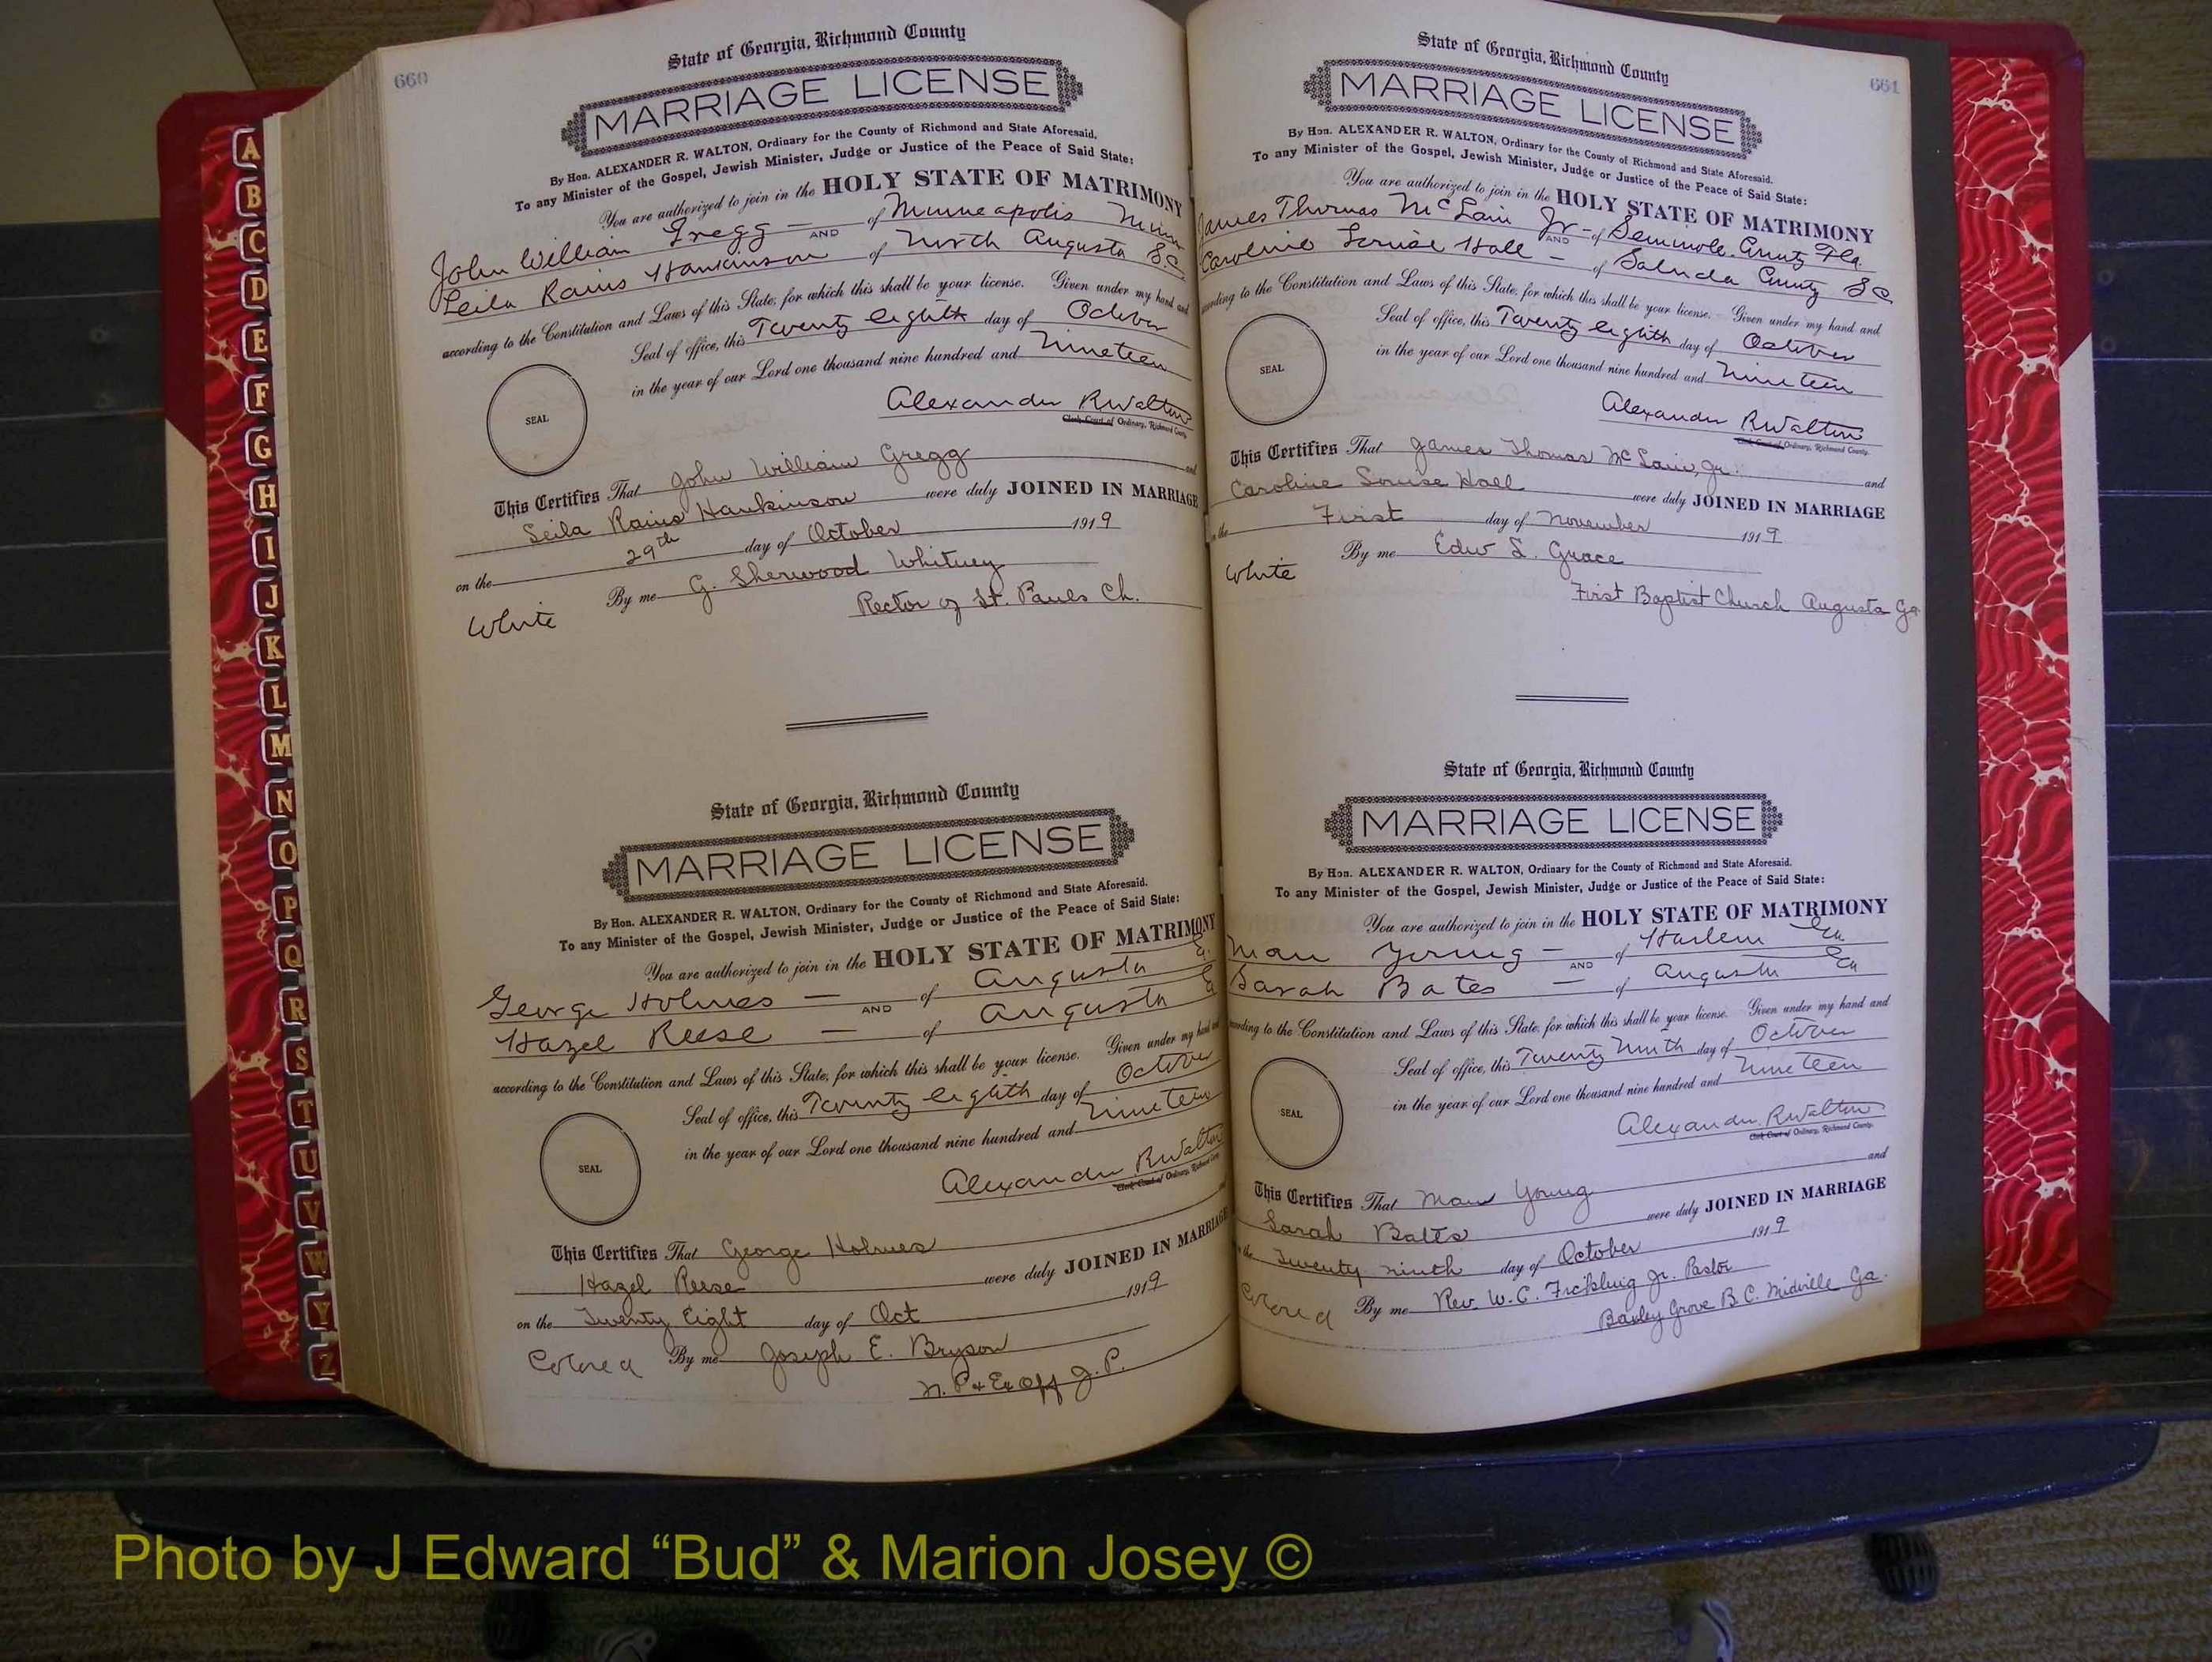 660
State of Georgia, Richmond County
MARRIAGE LICENSE
By Hon. ALEXANDER R. WALTON, Ordinary for the County of Richmond and State Aforesaid.
To any Minister of the Gospel, Jewish Minister, Judge or Justice of the Peace of Said State:
You are authorized to join in the HOLY STATE OF MATRIMONY
John William Gregg — of Minneapolis Minn
AND
Leila Rains Hankinson of North Augusta S.C.
according to the Constitution and Laws of this State, for which this shall be your license. Given under my hand and
Seal of office, this Twenty eighth day of October
in the year of our Lord one thousand nine hundred and nineteen
SEAL
Alexander R Walton
Clerk Court of Ordinary, Richmond County.
This Certifies That John William Gregg and
Leila Rains Hankinson were duly JOINED IN MARRIAGE
on the 29th day of October 1919
White By me G. Sherwood Whitney
Rector of St. Pauls Ch.
State of Georgia, Richmond County
MARRIAGE LICENSE
By Hon. ALEXANDER R. WALTON, Ordinary for the County of Richmond and State Aforesaid.
To any Minister of the Gospel, Jewish Minister, Judge or Justice of the Peace of Said State:
You are authorized to join in the HOLY STATE OF MATRIMONY
George Holmes — of Augusta G.
AND
Hazel Reese — of Augusta G
according to the Constitution and Laws of this State, for which this shall be your license. Given under my hand and
Seal of office, this Twenty eighth day of October
in the year of our Lord one thousand nine hundred and nineteen
SEAL
Alexander R Walton
Clerk Court of Ordinary, Richmond County
This Certifies That George Holmes
Hazel Reese were duly JOINED IN MARRIAGE
on the Twenty Eight day of Oct 1919
Colored By me Joseph E. Bryson
N. P & Ex Off J. P.
661
State of Georgia, Richmond County
MARRIAGE LICENSE
By Hon. ALEXANDER R. WALTON, Ordinary for the County of Richmond and State Aforesaid.
To any Minister of the Gospel, Jewish Minister, Judge or Justice of the Peace of Said State:
You are authorized to join in the HOLY STATE OF MATRIMONY
James Thomas McLain Jr - of Seminole County Fla.
AND
Caroline Louise Hall — of Saluda County S C
according to the Constitution and Laws of this State, for which this shall be your license. Given under my hand and
Seal of office, this Twenty eighth day of October
in the year of our Lord one thousand nine hundred and nineteen
SEAL
Alexander R Walton
Clerk Court of Ordinary, Richmond County.
This Certifies That James Thomas McLain, Jr. and
Caroline Louise Hall were duly JOINED IN MARRIAGE
on the First day of November 1919
White By me Edw L. Grace
First Baptist Church Augusta Ga
State of Georgia, Richmond County
MARRIAGE LICENSE
By Hon. ALEXANDER R. WALTON, Ordinary for the County of Richmond and State Aforesaid.
To any Minister of the Gospel, Jewish Minister, Judge or Justice of the Peace of Said State:
You are authorized to join in the HOLY STATE OF MATRIMONY
Man Young — of Harlem Ga
AND
Sarah Bates — of Augusta Ga
according to the Constitution and Laws of this State, for which this shall be your license. Given under my hand and
Seal of office, this Twenty Ninth day of October
in the year of our Lord one thousand nine hundred and nineteen
SEAL
Alexander R Walton
Clerk Court of Ordinary, Richmond County.
This Certifies That Man Young and
Sarah Batts were duly JOINED IN MARRIAGE
on the Twenty ninth day of October 1919
Colored By me Rev. W. C. Fickling Jr. Pastor
Grove B. C. Midville Ga.
A
B
C
D
E
F
G
H
I
J
K
L
M
N
O
P
Q
R
S
T
U
V
W
Y
Z
Photo by J Edward “Bud” & Marion Josey ©